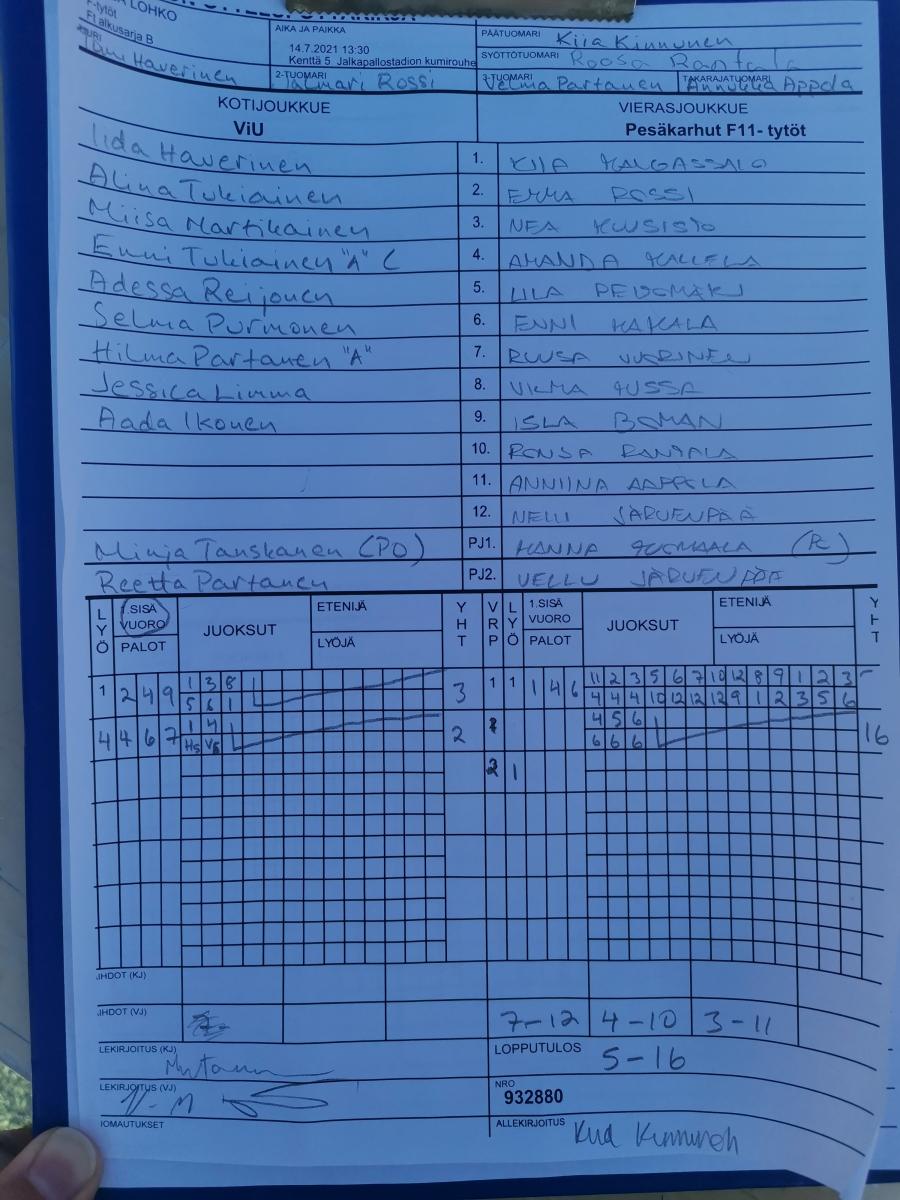 LOHKO
F-tytöt
F1 alkusarja B
AIKA JA PAIKKA
14.7.2021 13:30
Kenttä 5 Jalkapallostadion kumirouhe
PÄÄTUOMARI Kiia Kinnunen
SYÖTTÖTUOMARI Roosa Rantala
Haverinen
2-TUOMARI Jalmari Rossi
3-TUOMARI Velma Partanen
TAKARAJATUOMARI Annukka Appola
KOTIJOUKKUE
ViU
VIERASJOUKKUE
Pesäkarhut F11- tytöt
Iida Haverinen 1. KIIA KALGASSALO
Alina Tukiainen 2. EMMA ROSSI
Miisa Martikainen 3. NEA KUUSISTO
Enni Tukiainen "A" C 4. AMANDA KALLELA
Adessa Reijonen 5. LILA PEUOMÄKI
Selma Purmonen 6. ENNI KAKALA
Hilma Partanen "A" 7. RUUSA VUORINEN
Jessica Limma 8. VILMA JUSSA
Aada Ikonen 9. ISLA BOMAN
10. RONJA RANTALA
11. ANNIINA AAPPOLA
12. NELLI JÄRVENPÄÄ
Minja Tanskanen (PO) PJ1. HANNA JUOMAALA
Reetta Partanen PJ2. VELLU JÄRVENPÄÄ
LYÖ 1.SISÄ VUORO PALOT JUOKSUT ETENIJÄ LYÖJÄ YHT VRP LYÖ 1.SISÄ VUORO PALOT JUOKSUT ETENIJÄ LYÖJÄ YHT
1 2 4 9 1 3 8 1 3 1 1 4 6 11 2 3 5 6 7 10 12 8 9 1 2 3
5 6 1 4 4 4 10 12 12 12 9 1 2 3 5 6
4 4 6 7 1 4 2 4 5 6 16
H5 V5 6 6 6
2 1
JHDOT (KJ)
JHDOT (VJ) 7-12 4-10 3-11
LEKIRJOITUS (KJ)
LOPPUTULOS 5-16
LEKIRJOITUS (VJ)
NRO
932880
IOMAUTUKSET
ALLEKIRJOITUS Kiia Kinnunen